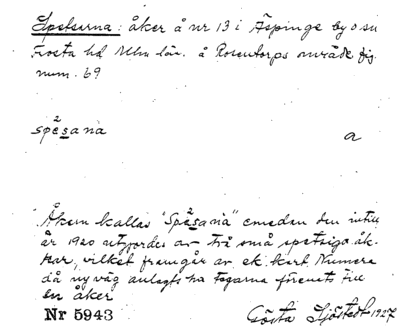 Spetsarna: åker å nr 13 i Äspinge by o sn
Frosta hd Mlm län. å Rosentorps område fig
num. 69
spe͔sana
a
Åkern kallas "Spesana" emedan den intill
år 1920 utgjordes av två små spetsiga åk-
rar, vilket framgår av ek. kart. Numera
då ny väg anlagts ha tegarna förenats till
en åker
Nr 5943
Gösta Sjöstedt 1927